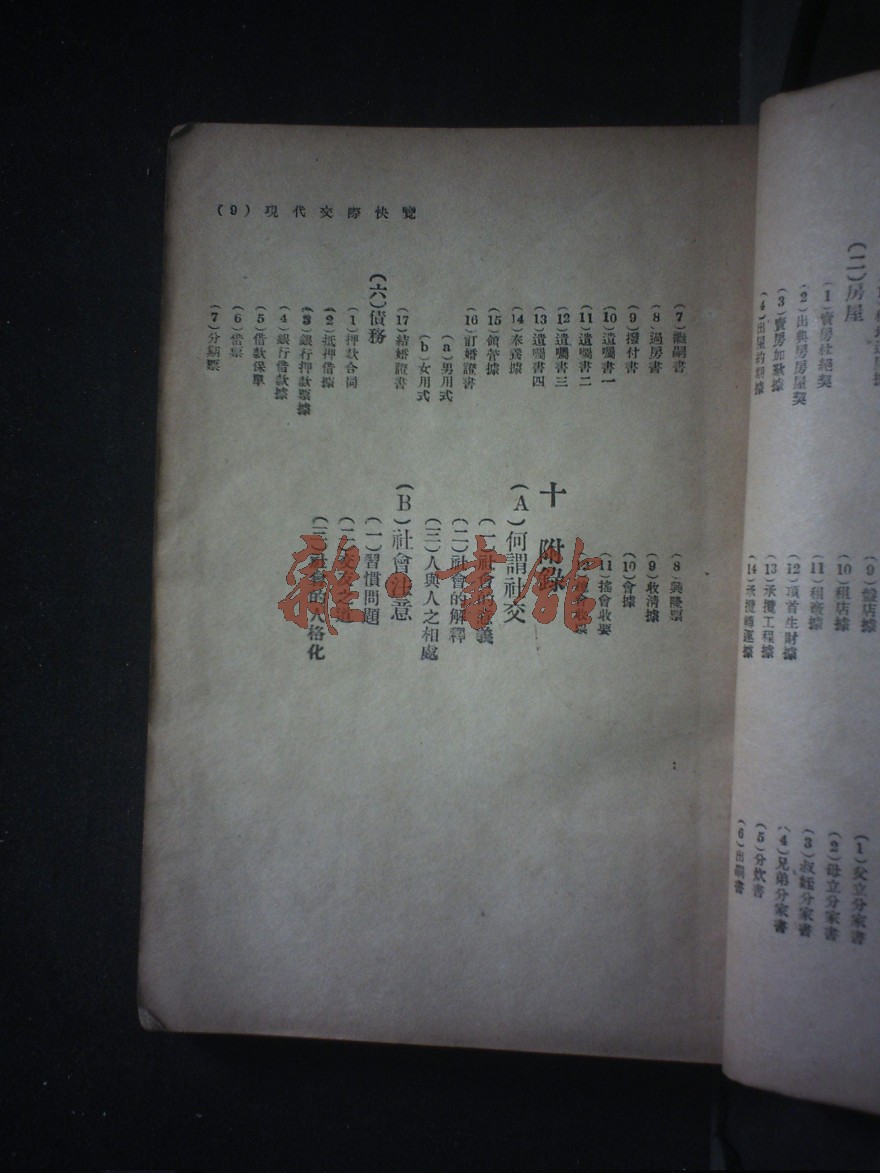 (二)房屋
(1)賣房杜絕契
(2)出典房房屋契
(3)賣房加歎據
(4)出屋約期據
(9)盤店據
(10)租店據
(11)租廠據
(12)頂首生財據
(13)承攬工程據
(14)承攬轉運據
(1)父立分家書
(2)母立分家書
(3)叔姪分家書
(4)兄弟分家書
(5)分炊書
(6)出嗣書
(9)現代交際快覽
(7)繼嗣書
(8)過房書
(9)撥付書
(10)遺囑書一
(11)遺囑書二
(12)遺囑書三
(13)遺囑書四
(14)奉養據
(15)領養據
(16)訂婚證書
(a)男用式
(b)女用式
(17)結婚證書
(六)債務
(1)押款合同
(2)抵押借據
(3)銀行押款票據
(4)銀行借款據
(5)借款保單
(6)借票
(7)分期票
(8)興隆票
(9)收清據
(10)會據
(11)搖會收要
十 附錄
(A)何謂社交
(一)社會的意義
(二)社會的解釋
(三)人與人之相處
(B)社會注意
(一)習慣問題
(二)交友之道
(三)社會的人格化
雜·書館